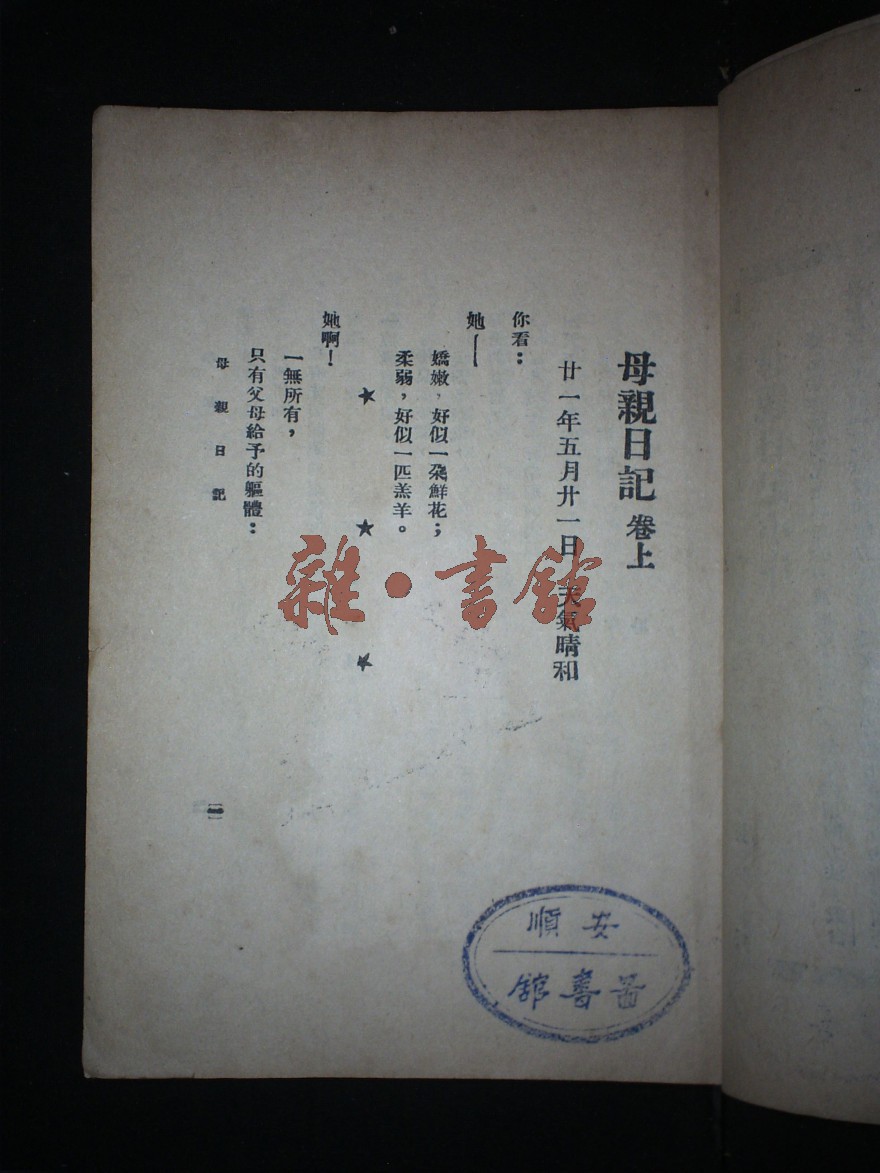 母親日記 卷上
廿一年五月廿一日 天氣晴和
你看：
她——
嬌嫩，好似一朶鮮花；
柔弱，好似一匹羔羊。
★ ★ ★
她啊！
一無所有，
只有父母給予的軀體：
母親日記
雜·書館
安順
圕書館